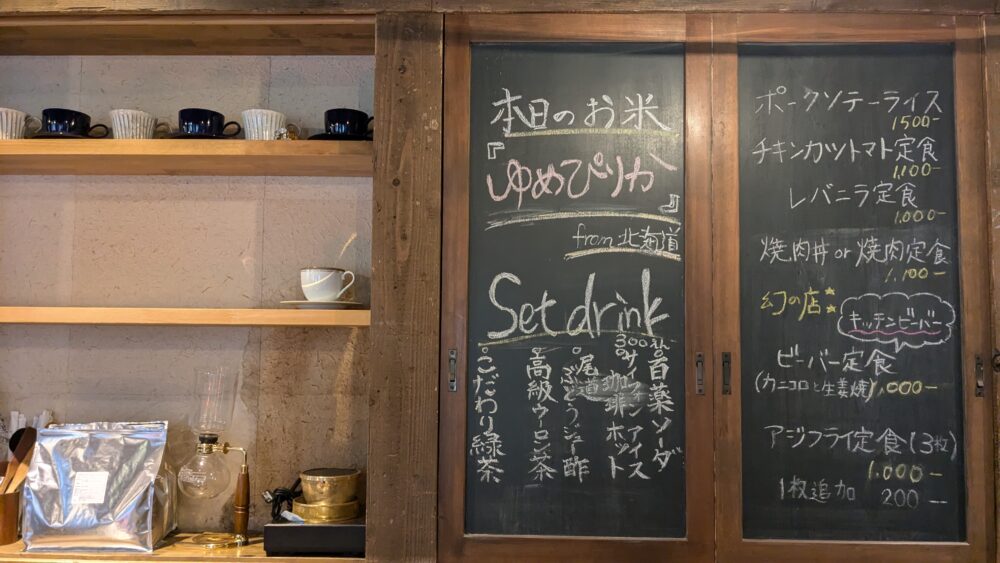 本日のお米
『ゆめぴりか』
from 北海道
Set drink
300
百薬ソーダ
サイフォン珈琲 アイス ホット
尾道ぶどうジュー酢
高級ウーロン茶
こだわり緑茶
ポークソテーライス
1500-
チキンカツトマト定食
1,100-
レバニラ定食
1,000-
焼肉丼 or 焼肉定食
1,100-
幻の店
キッチンビーバー
ビーバー定食
(カニコロと生姜焼) 1,000-
アジフライ定食(3枚)
1,000-
1枚追加 200-